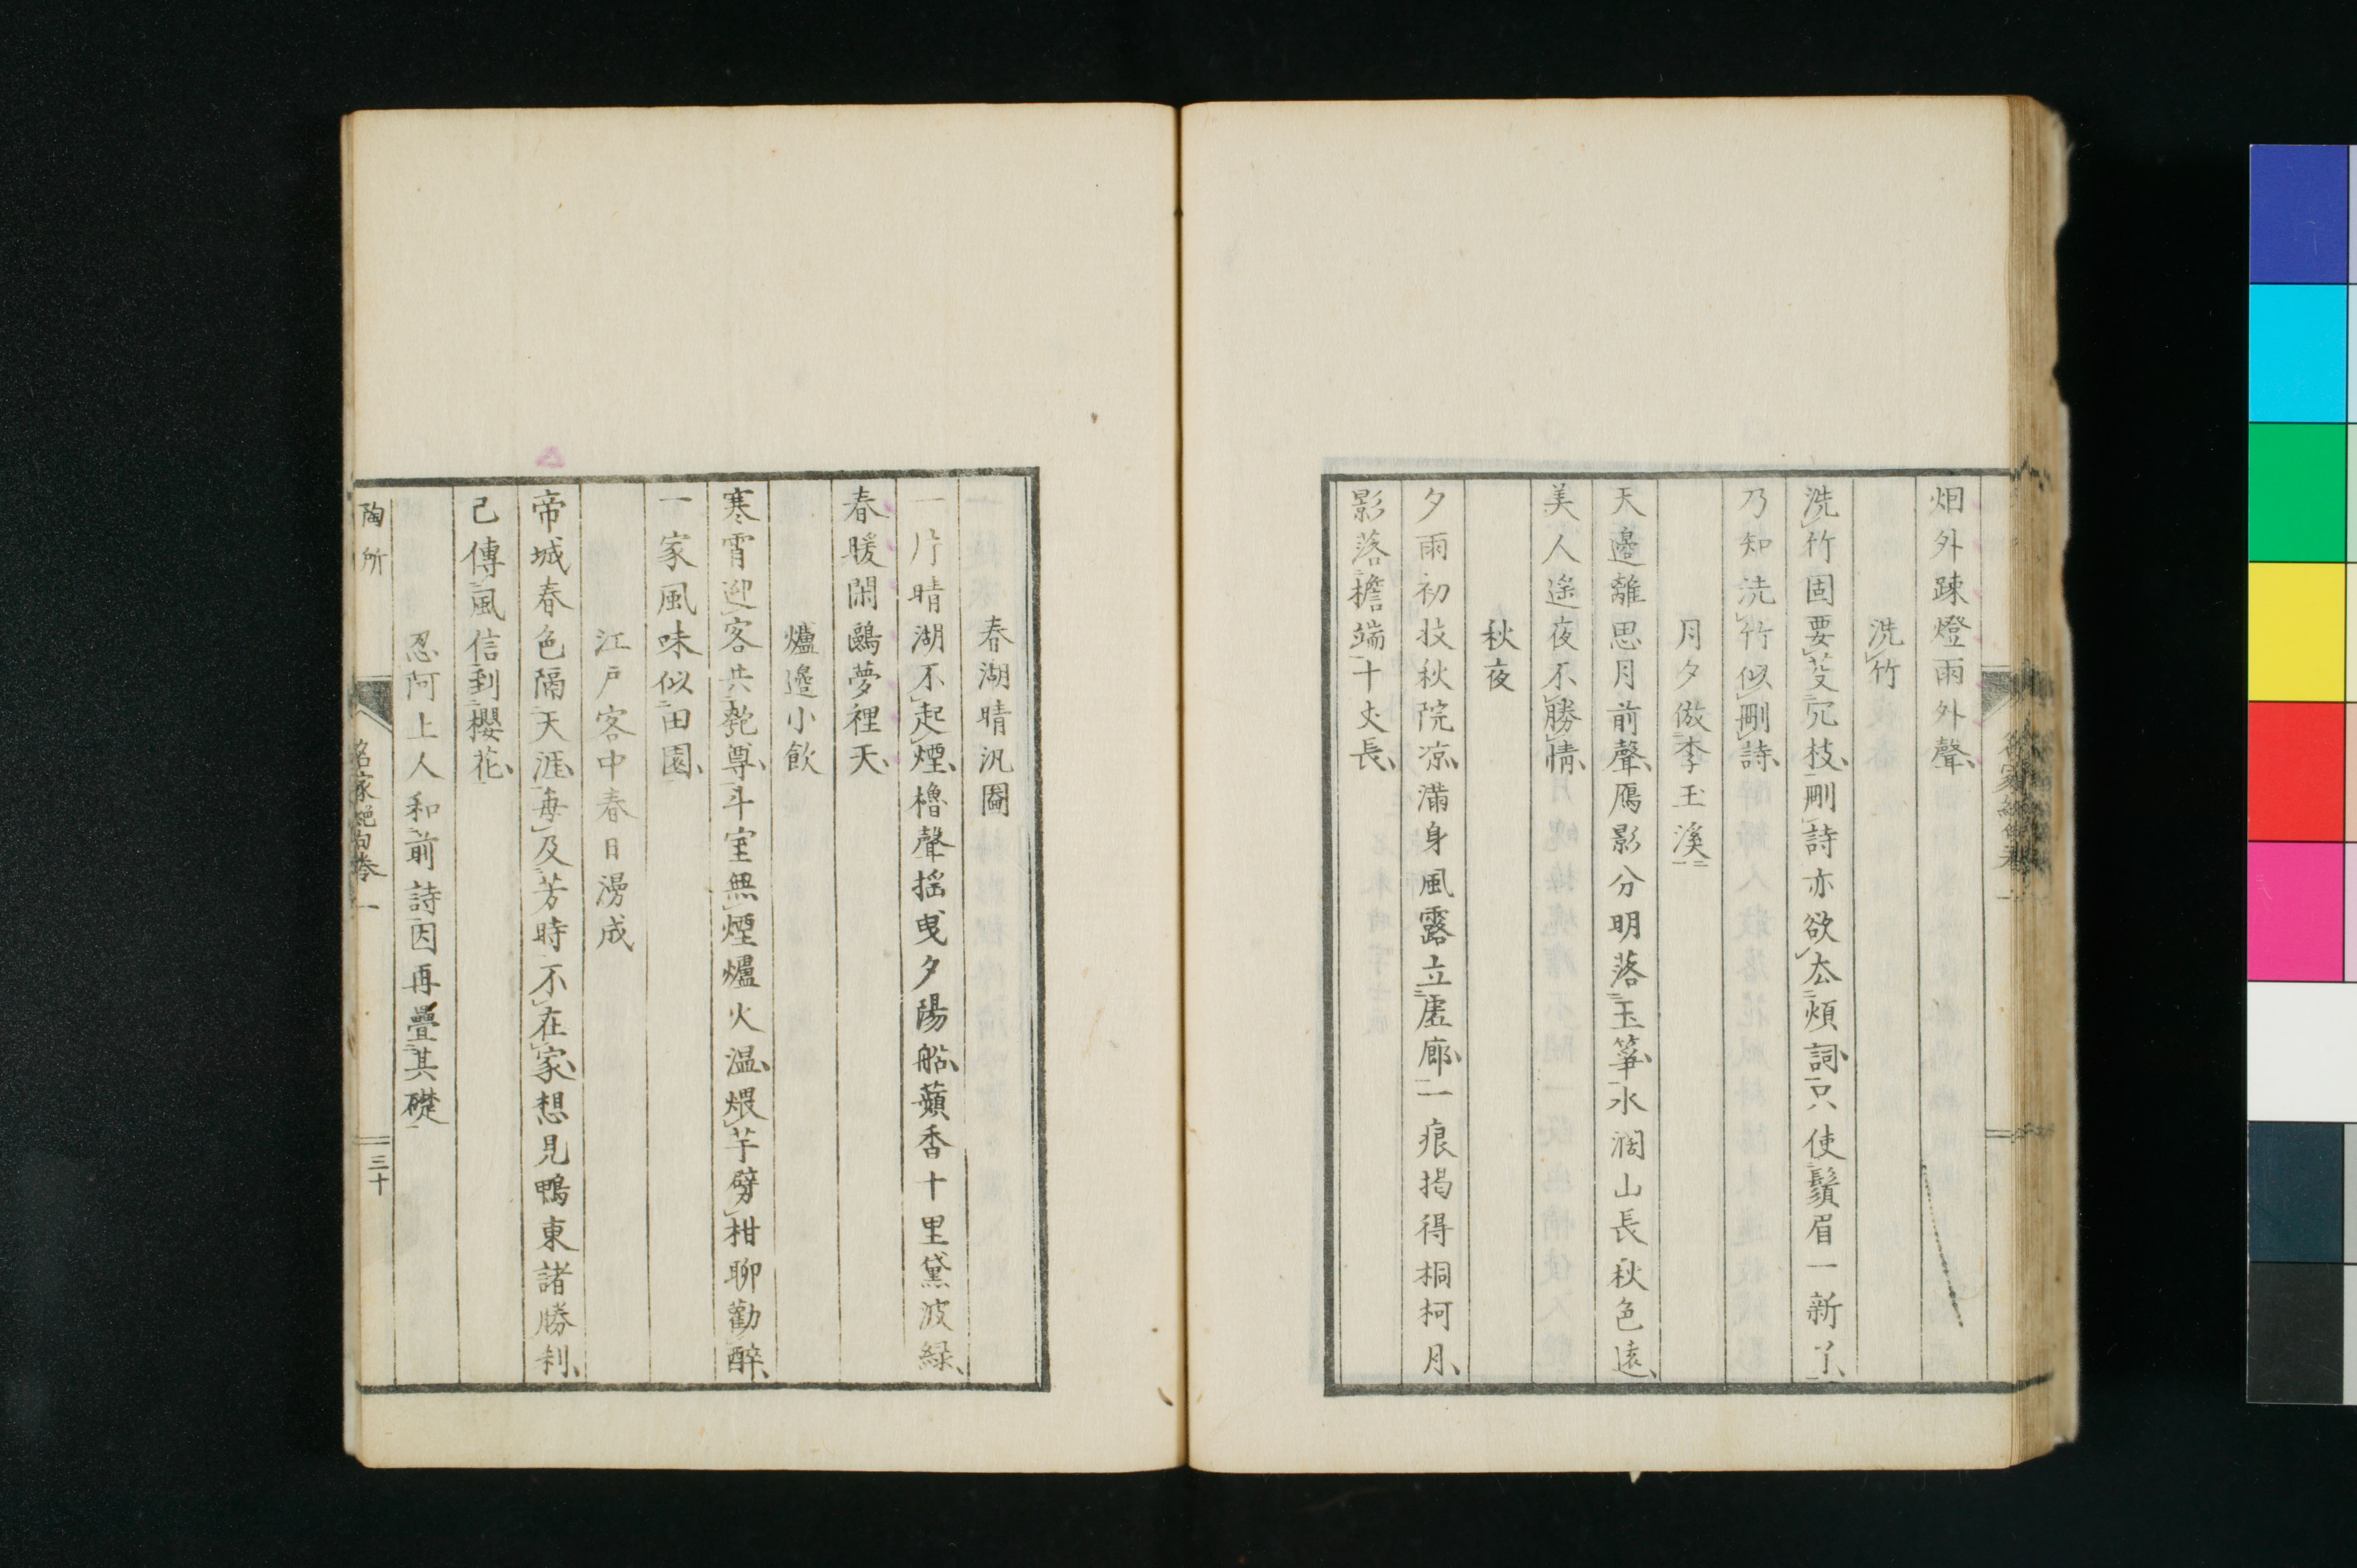 烟外踈燈雨外聲
洗竹
洗竹固要芟冗枝刪詩亦欲厺煩詞只使鬚眉一新了
乃知洗竹似刪詩
月夕倣李玉溪
天邊離思月前聲鴈影分明落玉箏水濶山長秋色遠
美人遙夜不勝情
秋夜
夕雨初技秋院凉滿身風露立虛廊一痕掲得桐柯月
影落檐端十丈長
春湖晴汎圖
一片晴湖不起煙櫓聲搖曵夕陽船蘋香十里黛波綠
春暖閑鷗夢裡天
爐邊小飲
寒宵迎客共匏尊斗室無煙爐火温煨芋劈柑聊勸醉
一家風味似田園
江戸客中春日漫成
帝城春色隔天涯每及芳時不在家想見鴨東諸勝刹
已傳風信到櫻花
忍阿上人和前詩因再疊其礎
陶所
名家絕句卷一
三十